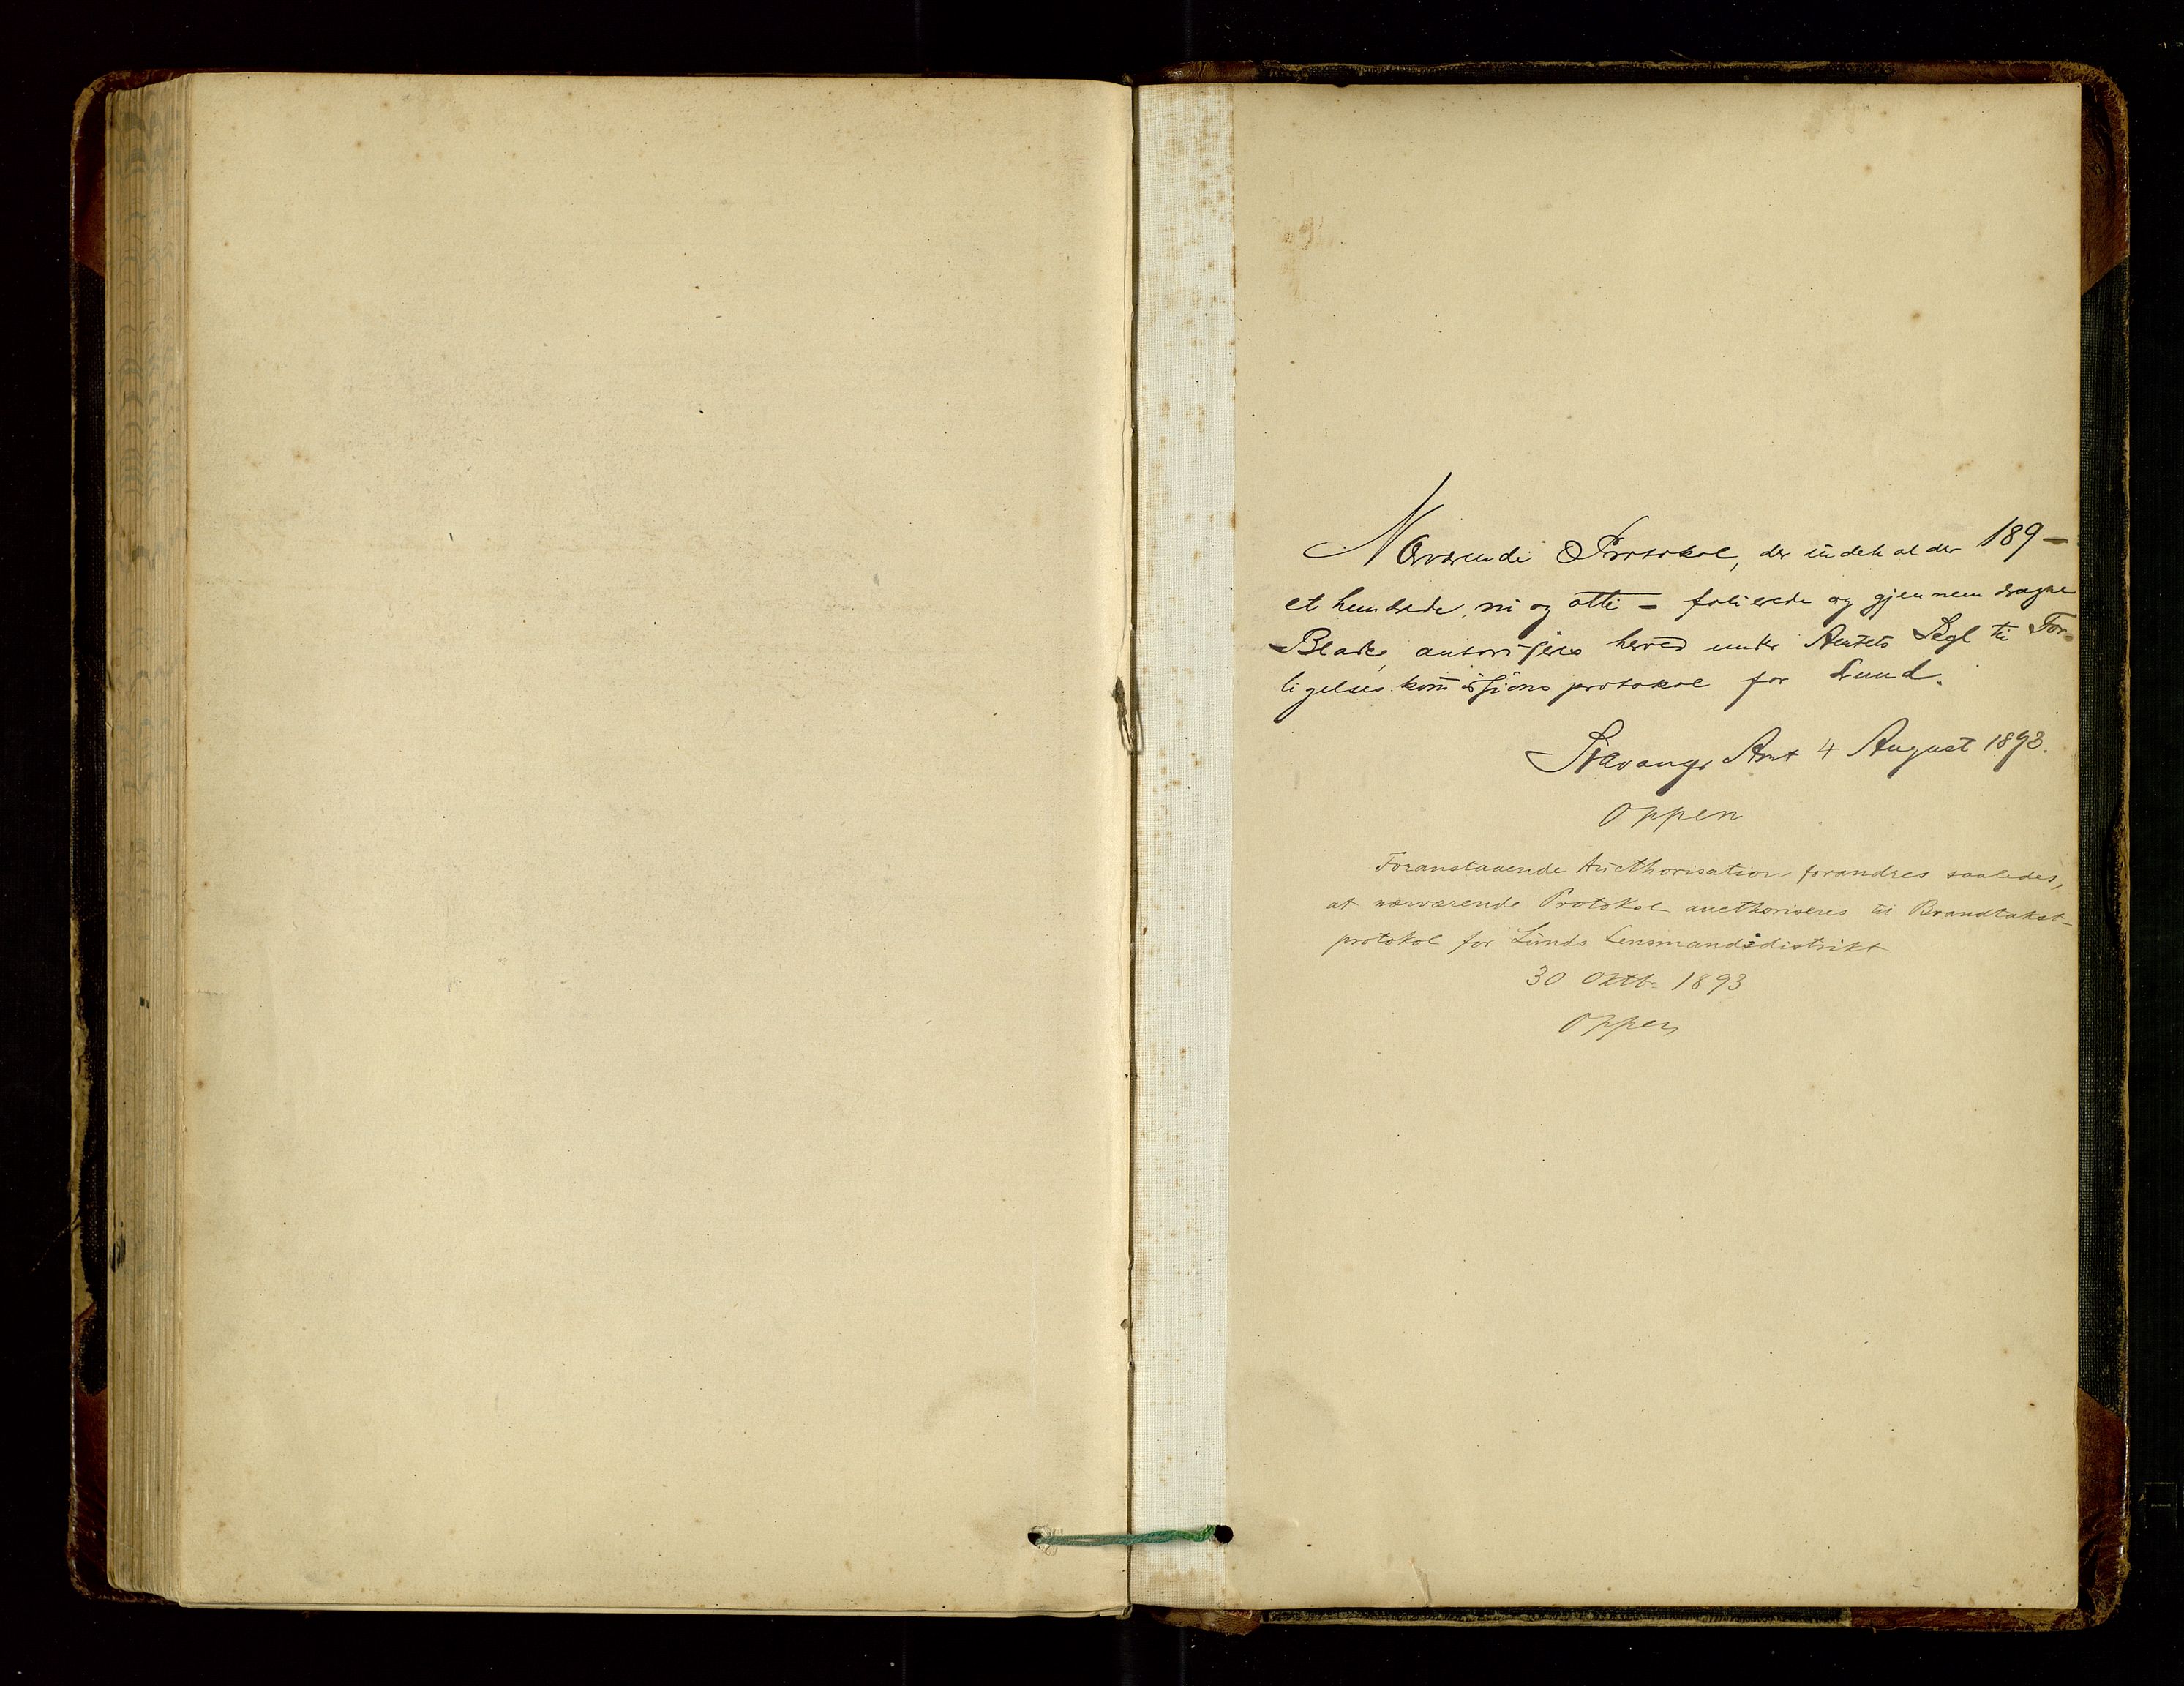 Nærværende Protokol, der indeholder 189 –
et hundrede, ni og otti – folierede og gjennemdragne
Blade, autoriseres herved under Amtets Segl til For-
ligelseskommissionsprotokol for Lund.
Stavanger Amt 4 August 1893.
Oppen
Foranstaaende Aucthorisation forandres saaledes,
at nærværende Protokol aucthoriseres til Brandtakst-
protokol for Lunds Lensmandsdistrikt
30 Oktb. 1893
Oppen